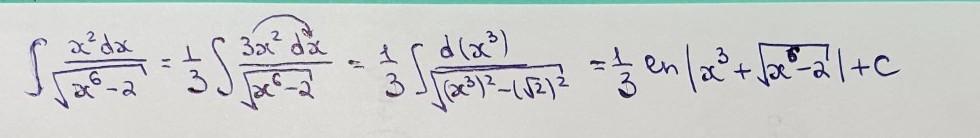 ∫ x²dx / √(x⁶-2) = 1/3 ∫ 3x² dx / √(x⁶-2) = 1/3 ∫ d(x³) / √((x³)²-(√2)²) = 1/3 ln|x³+√(x⁶-2)|+C